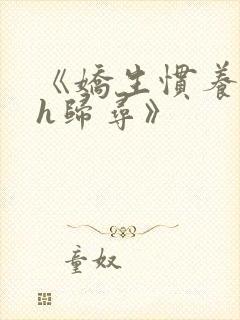 《嬌生慣養
h歸尋》
童奴